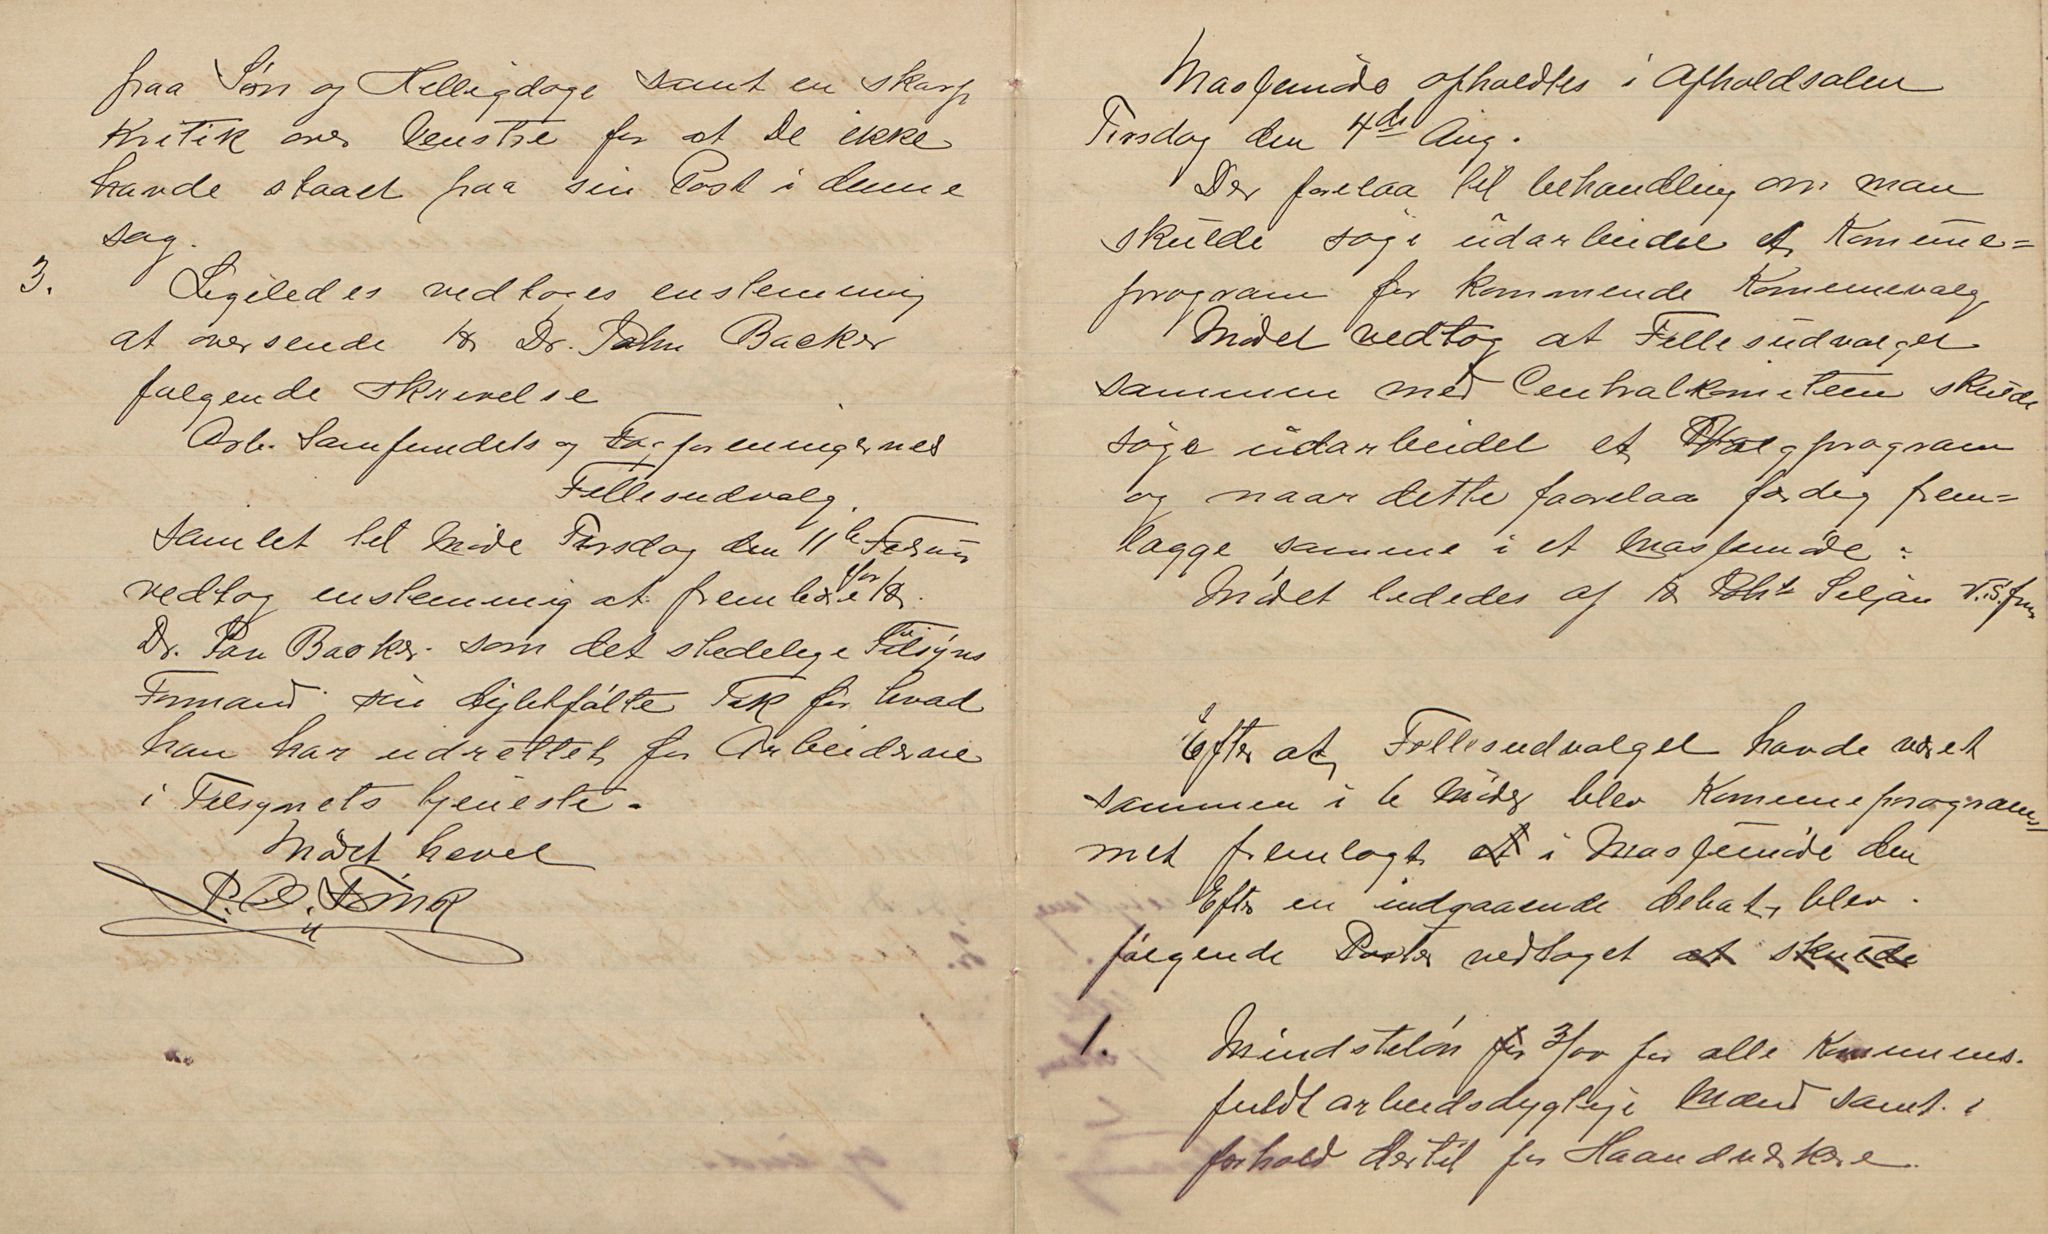 paa Søn og Helligdage samt en skarp
Kritik over Venstre for at De ikke
havde staaet paa sin Post i denne
sag.
3. Ligeledes vedtoges enstemmig
at oversende Hr Dr. John Backer
følgende skrivelse
Arb. Samfundets og Fagforeningernes
Fellesudvalg
samlet til Møde Tirsdag den 11te
vedtog enstemmig at frembære for Hr.
Dr. Backer som det stedelige Tilsyns
Formand sin dybtfølte Tak for hvad
han har udrettet for Arbeiderne
i Tilsynets tjeneste.
Mødet hevet
P. O. Fink
Massemøde afholdtes i Afholdsalen
Tirsdag den 4de Aug.
Der forelaa til behandling om man
skulde søge udarbeidet et Komune=
program for kommende Komunevalg
Mødet vedtog at Fellesudvalget
sammen med Centralkomiteen skulde
søge udarbeidet et Valgprogram
og naar dette foorelaa ferdig frem=
lægge samme i et Massemøde.
Mødet lededes af Hr Seljan V.S.fm
Efter at Fellesudvalget havde været
sammen i 6 Møder blev Komuneprogram-
met fremlagt at i Massemøde den
Efter en indgaaende debat blev
følgende Poster vedtaget at skulde
1. Mindsteløn for 3/00 for alle Kommunens
fuldt arbeidsdygtige Mænd samt i
forhold dertil for Haandverkere.